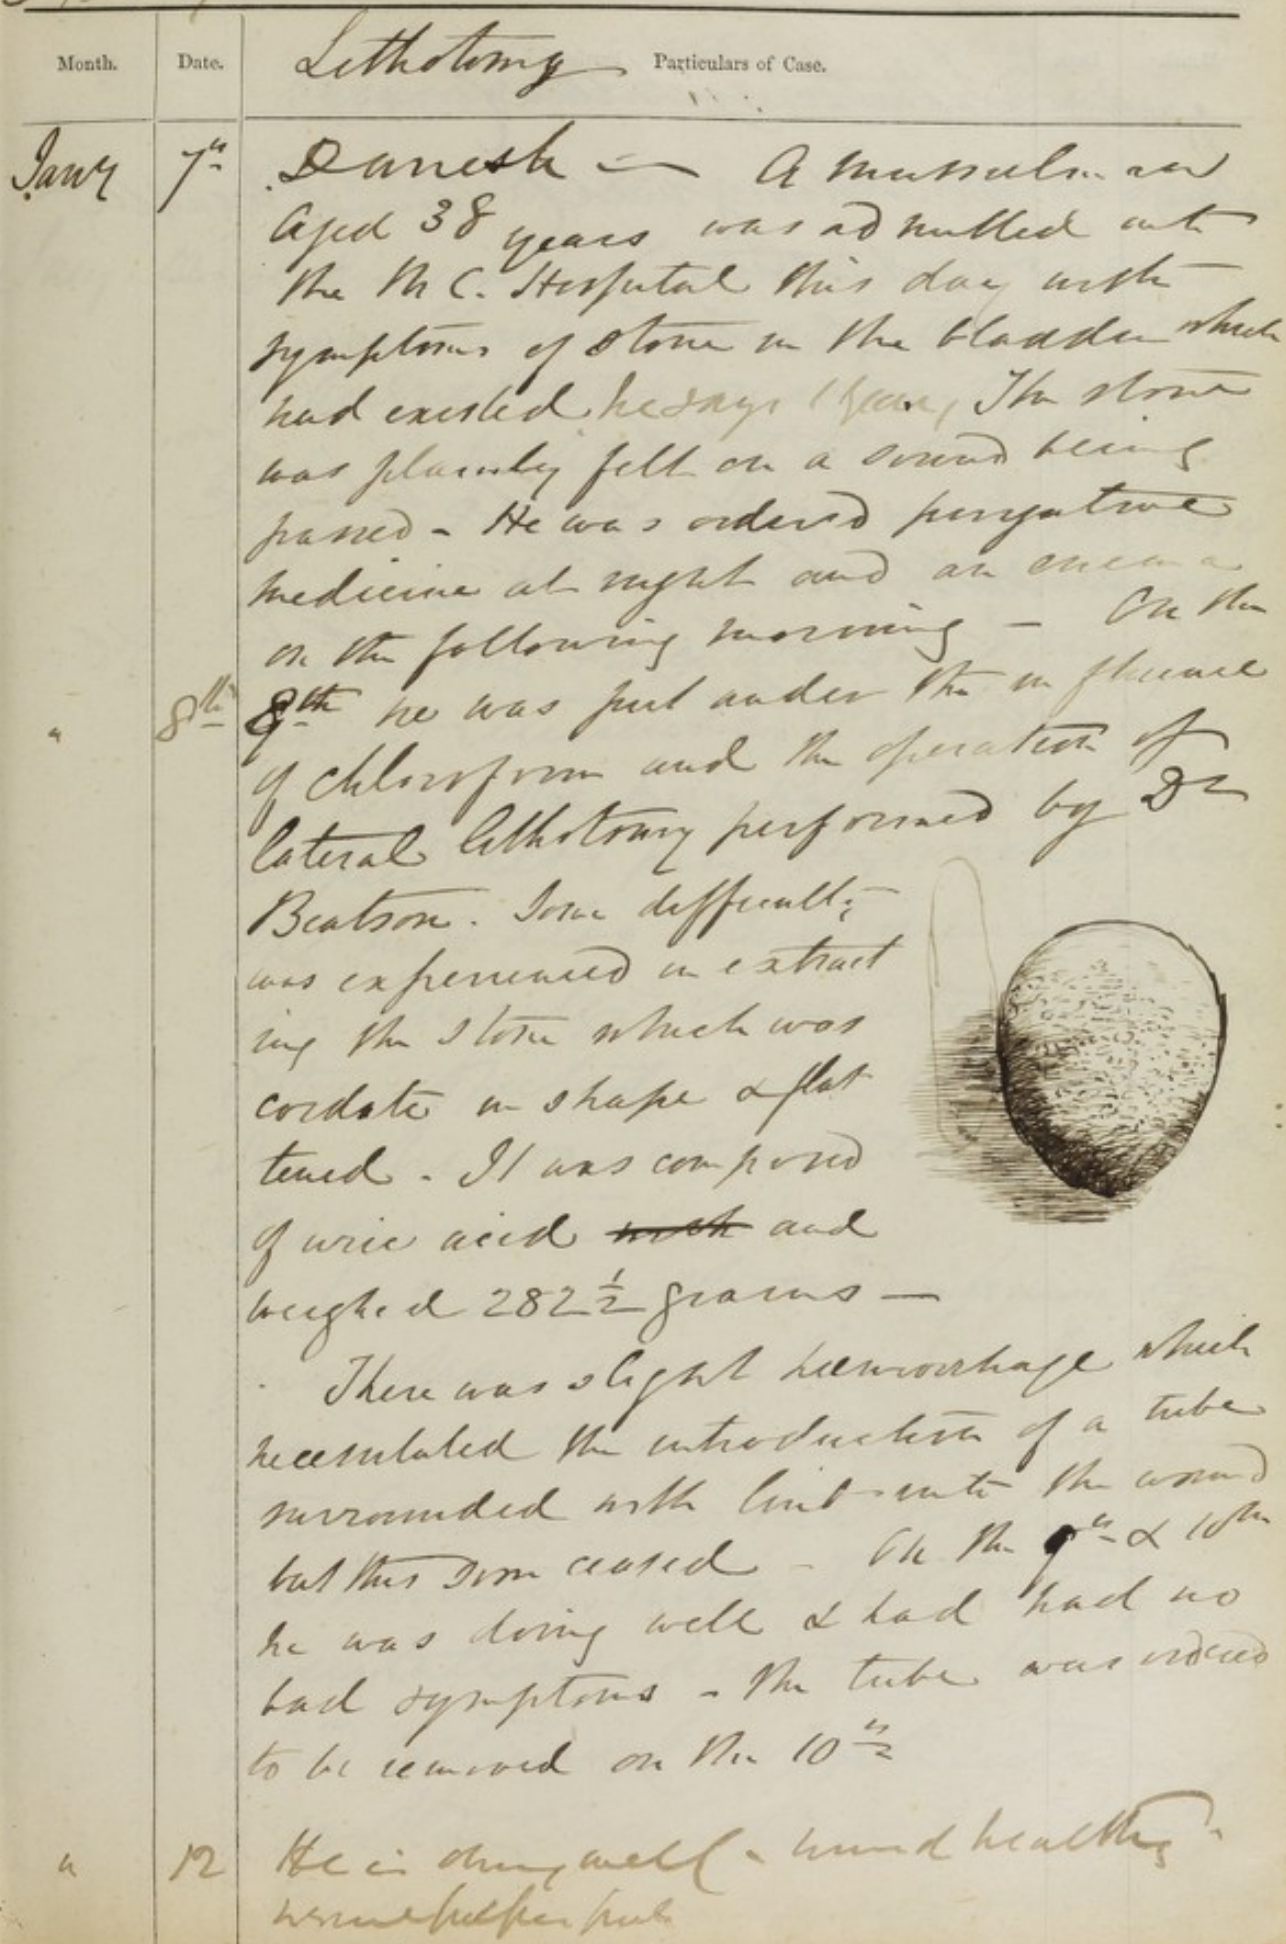 Month. Date. Lithotomy Particulars of Case.
Jany 7th Danesh — A Mussulman
aged 38 years was admitted into
the M C. Hospital this day with
symptoms of stone in the bladder which
had existed he says 1 year, The stone
was plainly felt on a sound being
passed - He was ordered purgative
medicine at night and an enema
on the following morning — On the
" 8th 8th he was put under the influence
of chloroform and the operation of
lateral lithotomy performed by Dr
Beatson. Some difficulty
was experienced in extract
ing the stone which was
cordate in shape & flat
tened. It was composed
of uric acid with and
weighed 282 1/2 grains —
There was slight hæmorrhage which
necessitated the introduction of a tube
surrounded with lint into the wound
but this soon ceased - On the 9th & 10th
he was doing well & had had no
bad symptoms - The tube was ordered
to be removed on the 10th
" 12 He is doing well - wound healthy -